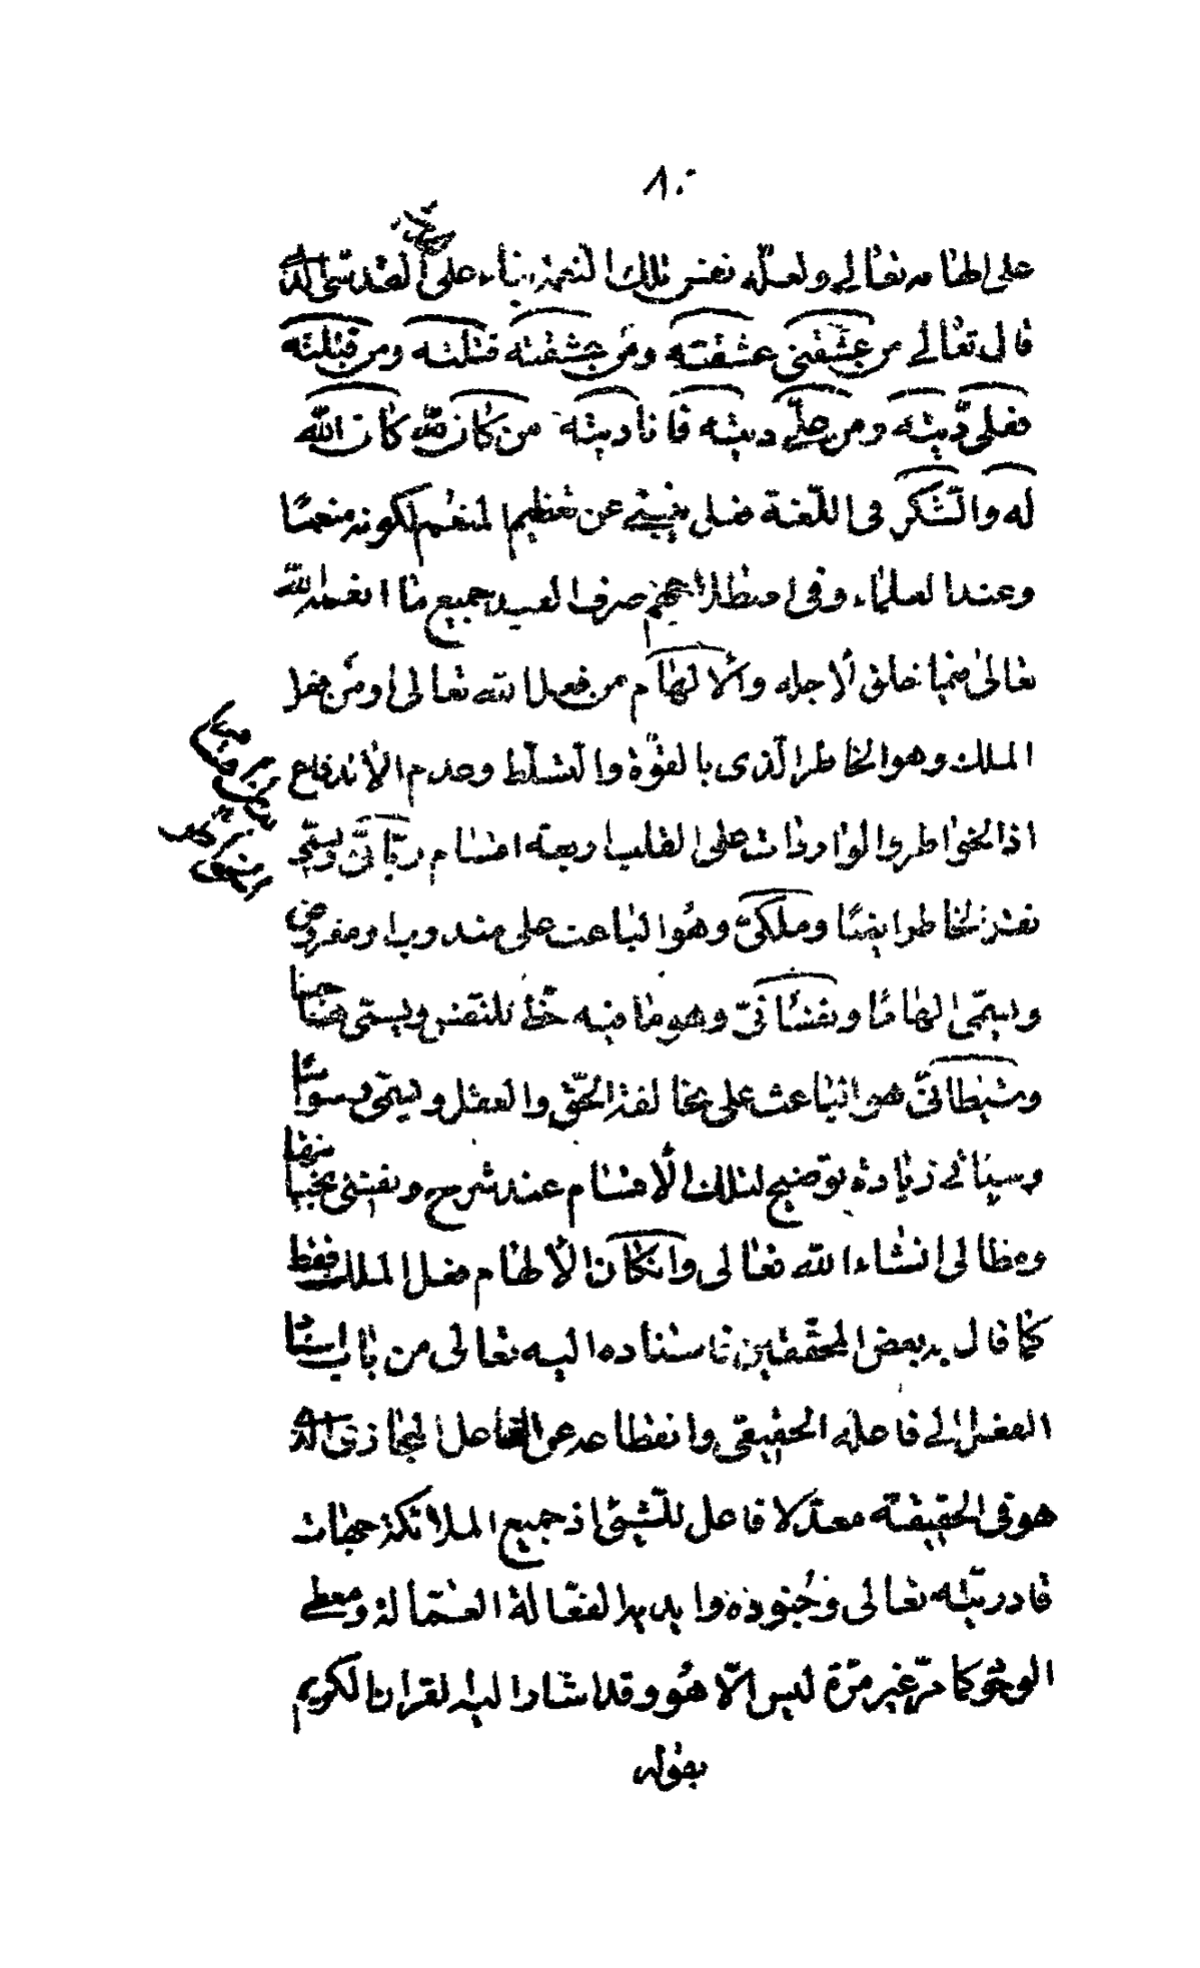 ٨٠
على الهامه تعالى ولعله نفس تلك النعمة بناء على القدسى الذى
قال تعالى من عشقنى عشقته ومن عشقته قتلته ومن قتلته
فعلىّ ديته ومن علىّ ديته فانا ديته من كان لله كان الله
له والشكر فى اللغة فعل ينبئ عن تعظيم المنعم لكونه منعمًا
وعند العلماء وفى اصطلاحهم صرف العبد جميع ما انعم الله
تعالى فيما خلق لاجله والالهام من فعل الله تعالى او من فعل
الملك وهو الخاطر الذى بالقوة والتسلط وعدم الاندفاع
اذ الخواطر والواردات على القلب اربعة اقسام ربّانىّ ويسمّى
نقر الخاطر ايضًا وملكىّ وهو الباعث على مندوب او مفروض
ويسمّى الهامًا ونفسانىّ وهو ما فيه حظّ للنفس ويسمّى هاجسا
وشيطانىّ هو الباعث على مخالفة الحقّ والعقل ويسمّى وسواسًا
وسيأتى زيادة توضيح لتلك الاقسام عند شرح ونفسى يخيبها
ومطالى انشاء الله تعالى وان كان الالهام فعل الملك فقط
كما قال به بعض المحققين فاسناده اليه تعالى من باب اسناد
الفعل الى فاعله الحقيقى وانقطاعه عن الفاعل المجازى الذى
هو فى الحقيقة معدّ لا فاعل للشيئ اذ جميع الملائكة جهات
قادريّته تعالى وجنوده وايديه الفعّالة العمّالة ومعطى
الوجود كما مرّ غير مرّة ليس الّا هو وقد اشار اليه القران الكريم
بقوله